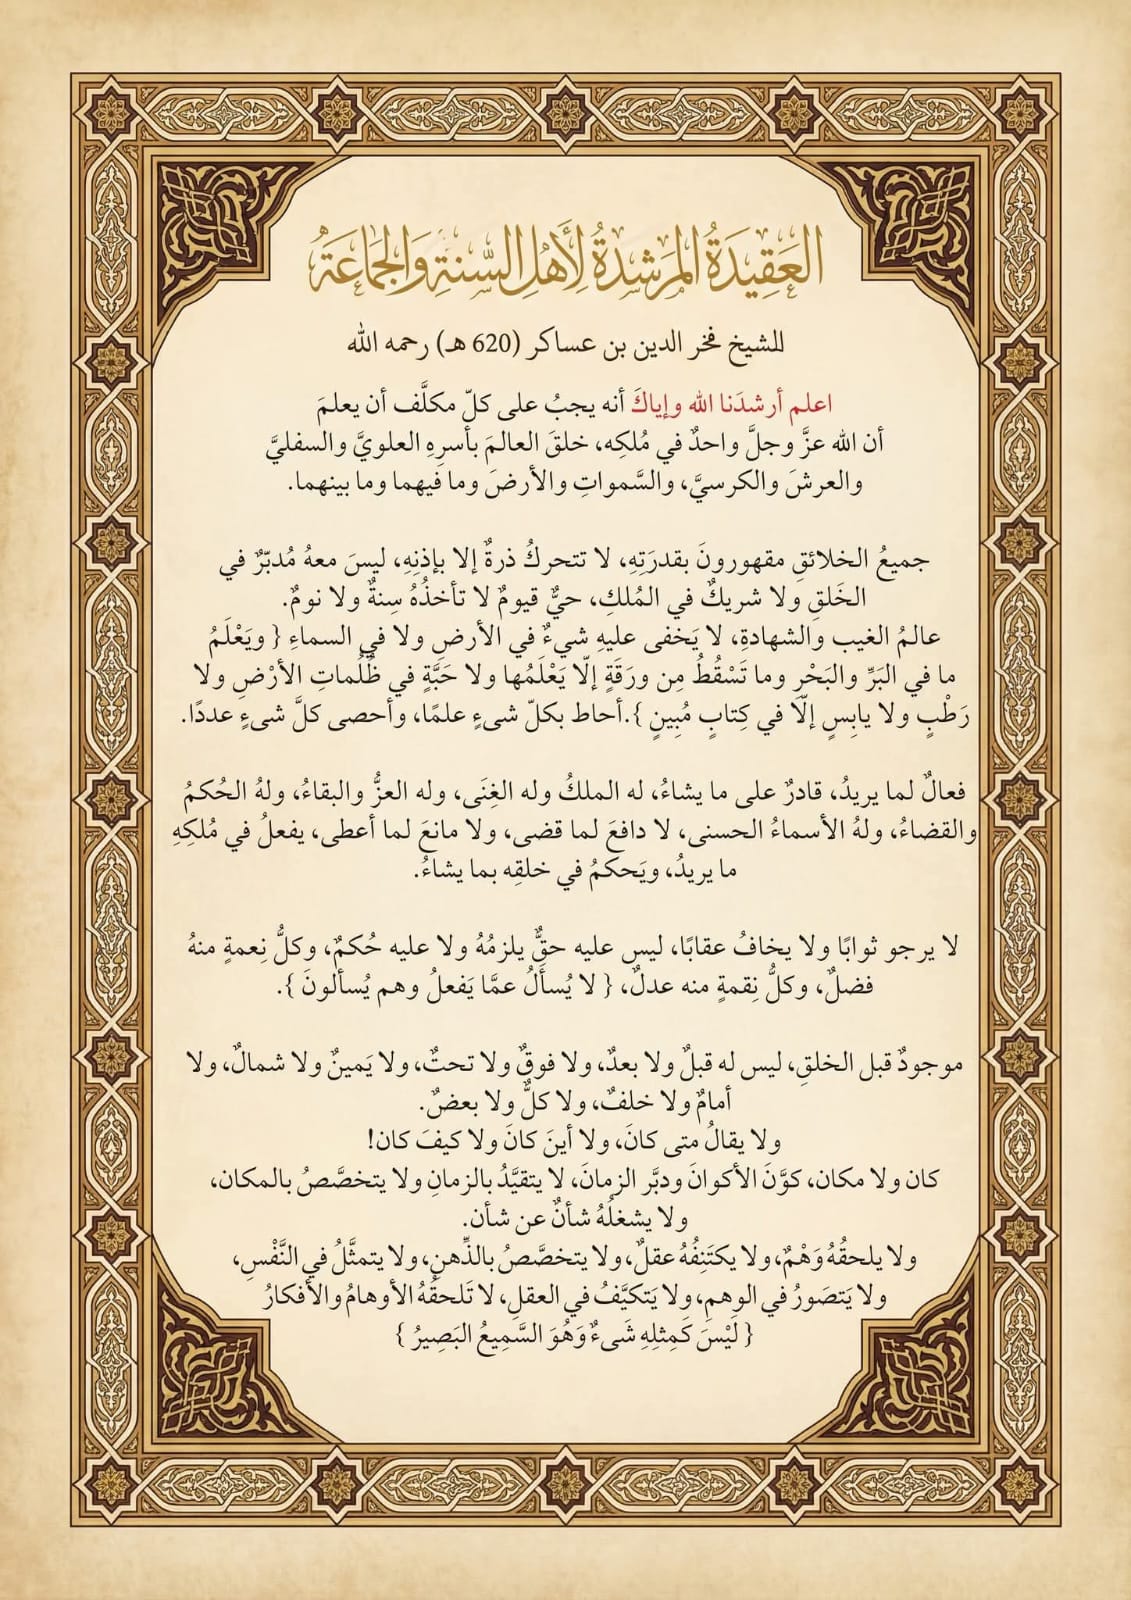 العَقِيدَةُ المُرشدةُ لِأَهْلِ السّنةِ وَالجَمَاعَةُ
للشيخ فخر الدين بن عساكر (620 هـ) رحمه الله
اعلم أرشدَنا الله وإياكَ أنه يجبُ على كلّ مكلَّف أن يعلمَ
أن الله عزَّ وجلَّ واحدٌ في مُلكِه، خلقَ العالمَ بأسرِهِ العلويَّ والسفليَّ
والعرشَ والكرسيَّ، والسَّمواتِ والأرضَ وما فيهما وما بينهما.
جميعُ الخلائقِ مقهورونَ بقدرَتِهِ، لا تتحركُ ذرةٌ إلا بإذنِهِ، ليسَ معهُ مُدبّرٌ في
الخَلقِ ولا شريكٌ في المُلكِ، حيٌّ قيومٌ لا تأخذُهُ سِنةٌ ولا نومٌ.
عالمُ الغيب والشهادةِ، لا يَخفى عليهِ شيءٌ في الأرضِ ولا في السماءِ { ويَعْلَمُ
ما في البَرِّ والبَحْرِ وما تَسْقُطُ مِن ورَقَةٍ إلّا يَعْلَمُها ولا حَبَّةٍ في ظُلُماتِ الأرْضِ ولا
رَطْبٍ ولا يابِسٍ إلّا في كِتابٍ مُبِينٍ }.أحاط بكلّ شىءٍ علمًا، وأحصى كلَّ شىءٍ عددًا.
فعالٌ لما يريدُ، قادرٌ على ما يشاءُ، له الملكُ وله الغِنَى، وله العزُّ والبقاءُ، ولهُ الحُكمُ
والقضاءُ، ولهُ الأسماءُ الحسنى، لا دافعَ لما قضى، ولا مانعَ لما أعطى، يفعلُ في مُلكِهِ
ما يريدُ، ويَحكمُ في خلقِه بما يشاءُ.
لا يرجو ثوابًا ولا يخافُ عقابًا، ليس عليه حقٌّ يلزمُهُ ولا عليه حُكمٌ، وكلُّ نِعمةٍ منهُ
فضلٌ، وكلُّ نِقمةٍ منه عدلٌ، { لا يُسأَلُ عمَّا يَفعلُ وهم يُسألونَ }.
موجودٌ قبل الخلقِ، ليس له قبلٌ ولا بعدٌ، ولا فوقٌ ولا تحتٌ، ولا يَمينٌ ولا شمالٌ، ولا
أمامٌ ولا خلفٌ، ولا كلٌّ ولا بعضٌ.
ولا يقالُ متى كانَ، ولا أينَ كانَ ولا كيفَ كان!
كان ولا مكان، كوَّنَ الأكوانَ ودبَّر الزمانَ، لا يتقيَّدُ بالزمانِ ولا يتخصَّصُ بالمكان،
ولا يشغلُهُ شأنٌ عن شأن.
ولا يلحقُهُ وَهْمٌ، ولا يكتَنِفُهُ عقلٌ، ولا يتخصَّصُ بالذِّهنِ، ولا يتمثَّلُ في النَّفْسِ،
ولا يَتصَورُ في الوهمِ، ولا يَتكيَّفُ في العقلِ، لا تَلحقُهُ الأوهامُ والأفكارُ
{ لَيْسَ كَمِثلِهِ شَىءٌ وَهُوَ السَّمِيعُ البَصِيرُ }